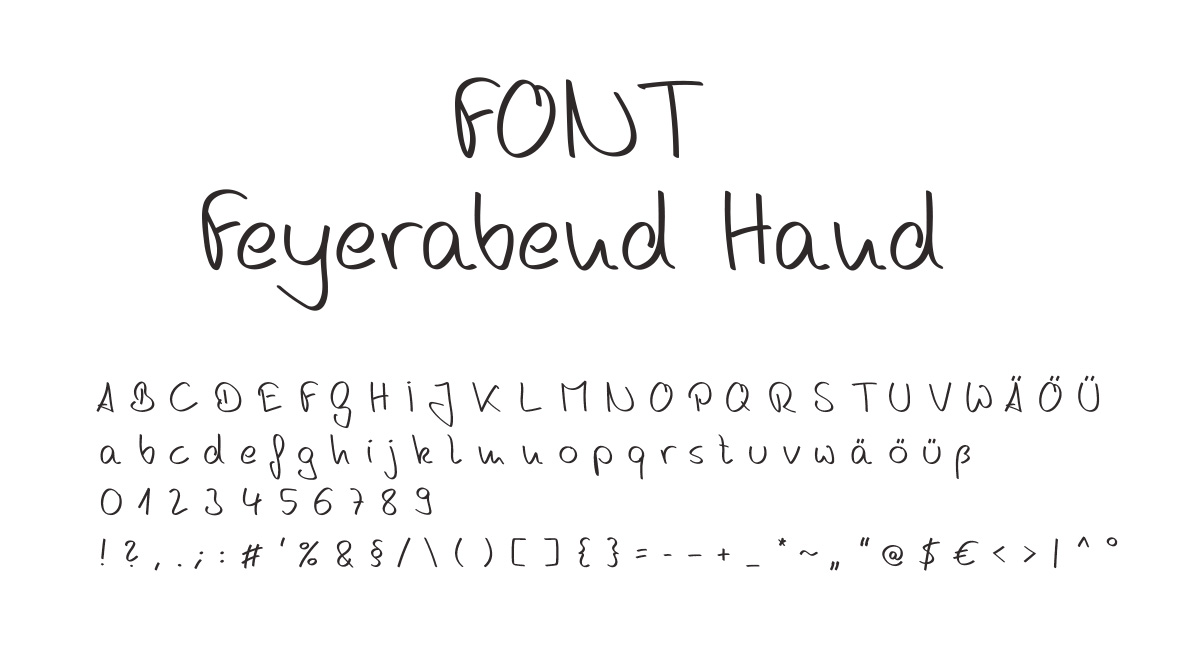 FONT
Feyerabend Hand
A B C D E F G H I J K L M N O P Q R S T U V W Ä Ö Ü
a b c d e f g h i j k l m n o p q r s t u v w ä ö ü ß
0 1 2 3 4 5 6 7 8 9
! ? , . ; : # ' % & § / \ ( ) [ ] { } = - – + _ * ~ „ “ @ $ € < > | ^ °